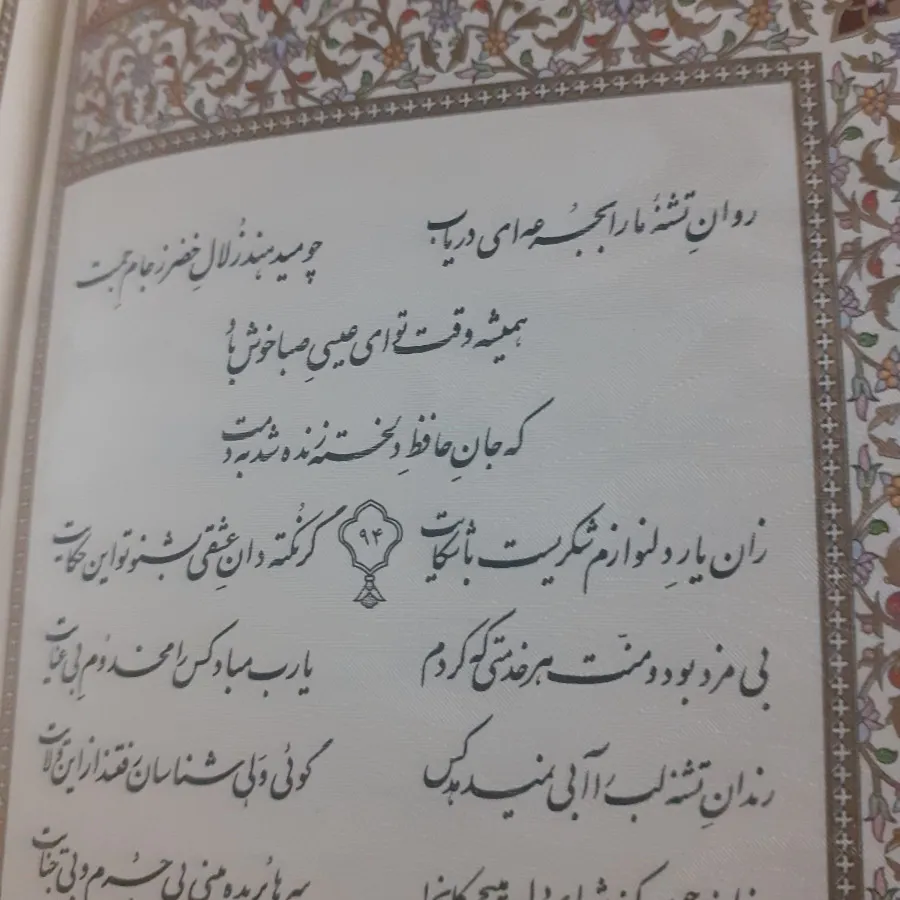 روانِ تشنهٔ ما را بجُرعه‌ای دریاب چو میدهند زُلالِ خضر ز جامِ جمت
همیشه وقت تو ای عیسیِ صبا خوش باد
که جانِ حافظِ دلخسته زنده شد به دمت
زان یارِ دلنوازم شکریست با شکایت ۹۴ گر نُکته دانِ عشقی بشنو تو این حکایت
بی مزد بود و منّت هر خدمتی که کردم یا رب مباد کس را مخدومِ بی عنایت
رندانِ تشنه لب را آبی نمیدهد کس گوئی وَلی شناسان رفتند از این ولایت
سرها بُریده بینی بی جُرم و بی جنایت